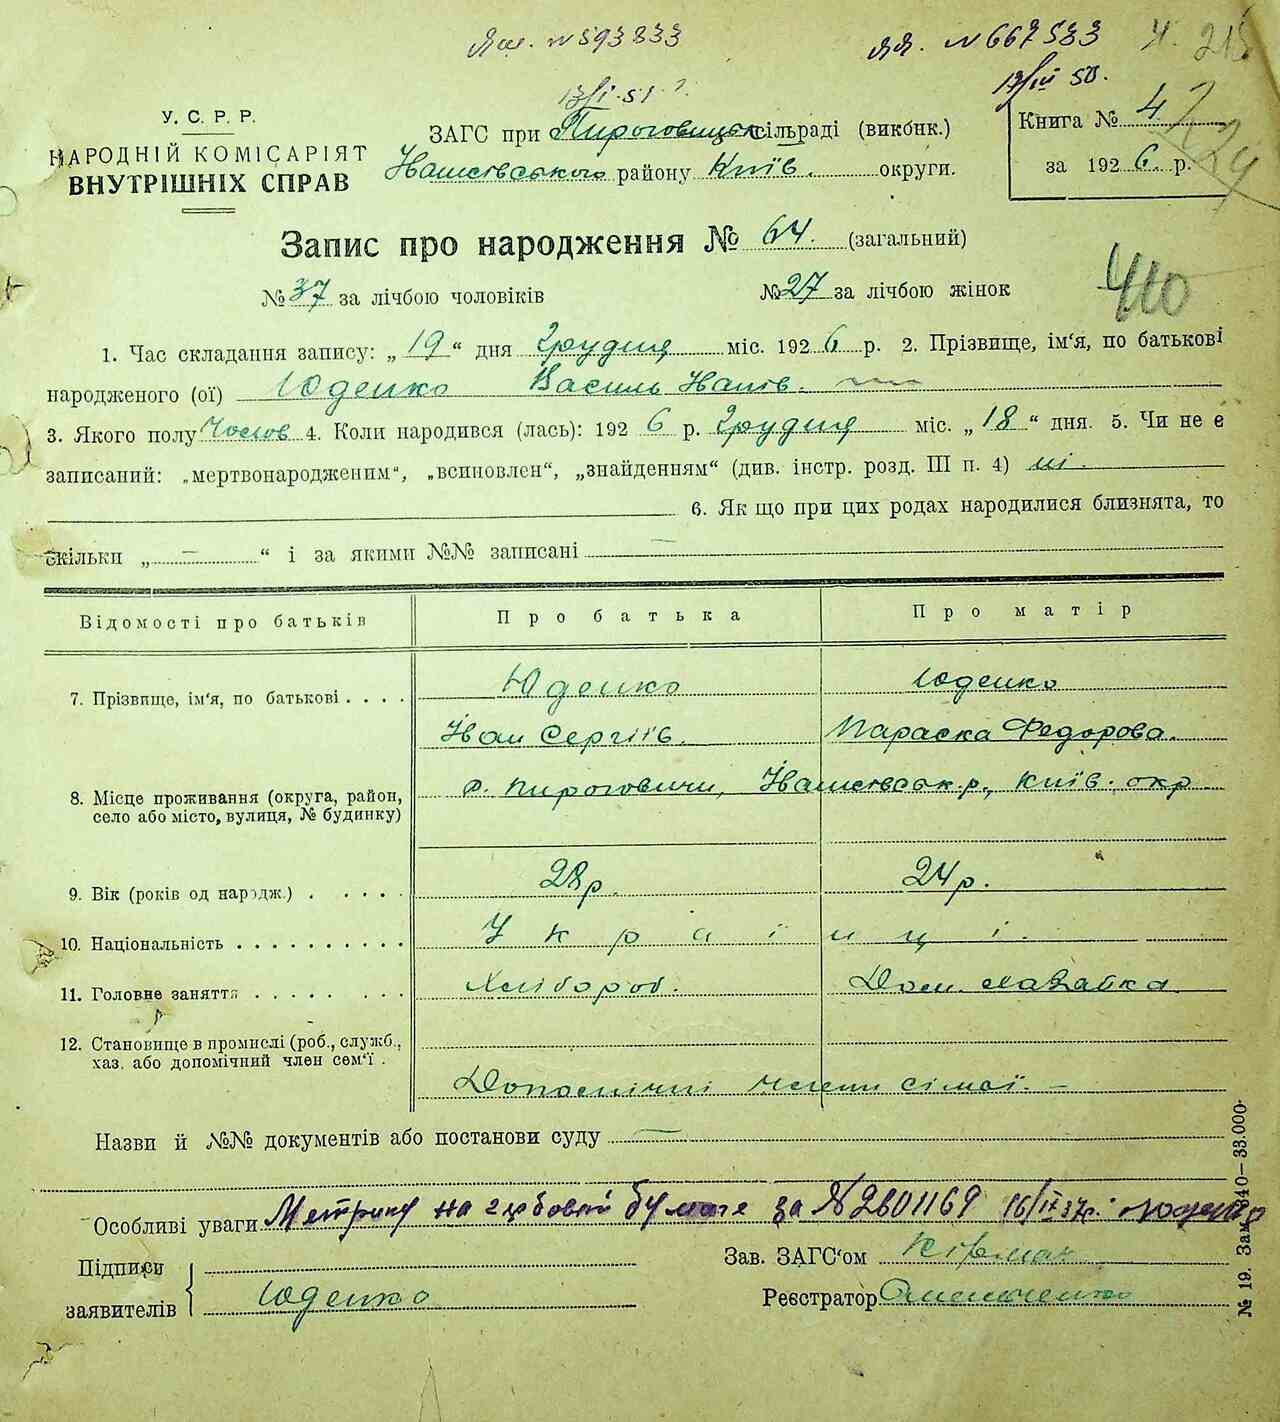 № 593833
№ 667533
13/I 51
13/III 50.
У. С. Р. Р.
НАРОДНІЙ КОМІСАРІЯТ
ВНУТРІШНІХ СПРАВ
ЗАГС при Пироговицьк сільраді (викбнк.)
району Київ. округи.
Книга № 4
за 1926 р.
Запис про народження № 64. (загальний)
№ 37 за лічбою чоловіків № 27 за лічбою жінок
410
1. Час складання запису: „19“ дня Грудня міс. 1926 р. 2. Прізвище, ім'я, по батькові
народженого (ої) Юденко Василь Іванів.
3. Якого полу Чолов 4. Коли народився (лась): 1926 р. Грудня міс. „18“ дня. 5. Чи не є
записаний: „мертвонародженим“, „всиновлен“, „знайденням“ (див. інстр. розд. III п. 4) ні.
6. Як що при цих родах народилися близнята, то
скільки „—“ і за якими №№ записані —
Відомості про батьків Про батька Про матір
7. Прізвище, ім'я, по батькові . . . . Юденко Юденко
Іван Сергіїв. Параска Федорова.
8. Місце проживання (округа, район, с. Пироговичи, р., Київ. окр
село або місто, вулиця, № будинку)
9. Вік (років од народж.) . . . . . 28 р. 24 р.
10. Національність . . . . . . . . . . Українці.
11. Головне заняття . . . . . . . . Хлібороб. Дом. хазайка
12. Становище в промислі (роб., служб.,
хаз. або допомічний член сем'ї . Допомічні члени сімєї. —
Назви й №№ документів або постанови суду —
Особливі уваги Метрику на гербовой бумаге за № 2601169 16/IV 37р.
Підписи
заявителів Юденко
Зав. ЗАГС'ом
Реєстратор Омельченко
№ 19. Зам. 340—33.000